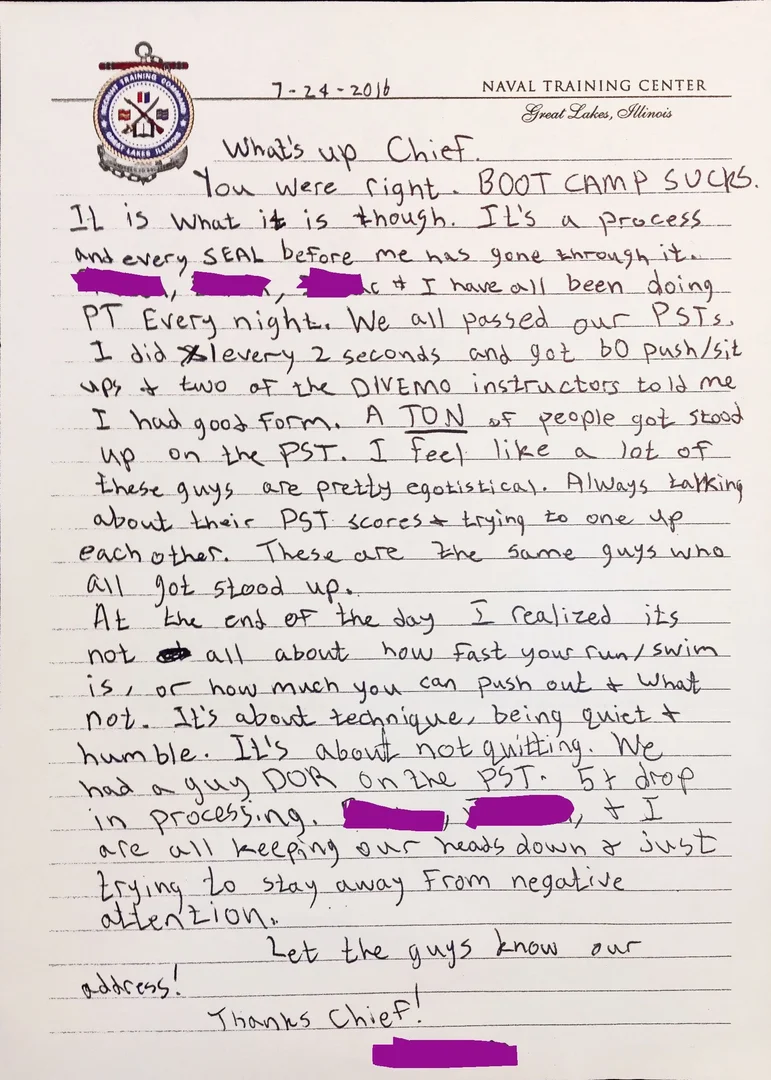 RECRUIT TRAINING COMMAND
GREAT LAKES, ILLINOIS
7-24-2016
NAVAL TRAINING CENTER
Great Lakes, Illinois
What's up Chief.
You were right. BOOT CAMP SUCKS.
It is what it is though. It's a process
and every SEAL before me has gone through it.
, , c & I have all been doing
PT Every night. We all passed our PSTs.
I did 1 every 2 seconds and got 60 push/sit
ups & two of the DIVEMO instructors told me
I had good form. A TON of people got stood
up on the PST. I feel like a lot of
these guys are pretty egotistical. Always talking
about their PST scores & trying to one up
each other. These are the same guys who
all got stood up.
At the end of the day I realized its
not all about how fast your run/swim
is, or how much you can push out & what
not. It's about technique, being quiet &
humble. It's about not quitting. We
had a guy DOR on the PST. 5+ drop
in processing. , , & I
are all keeping our heads down & just
trying to stay away from negative
attention.
Let the guys know our
address!
Thanks Chief!